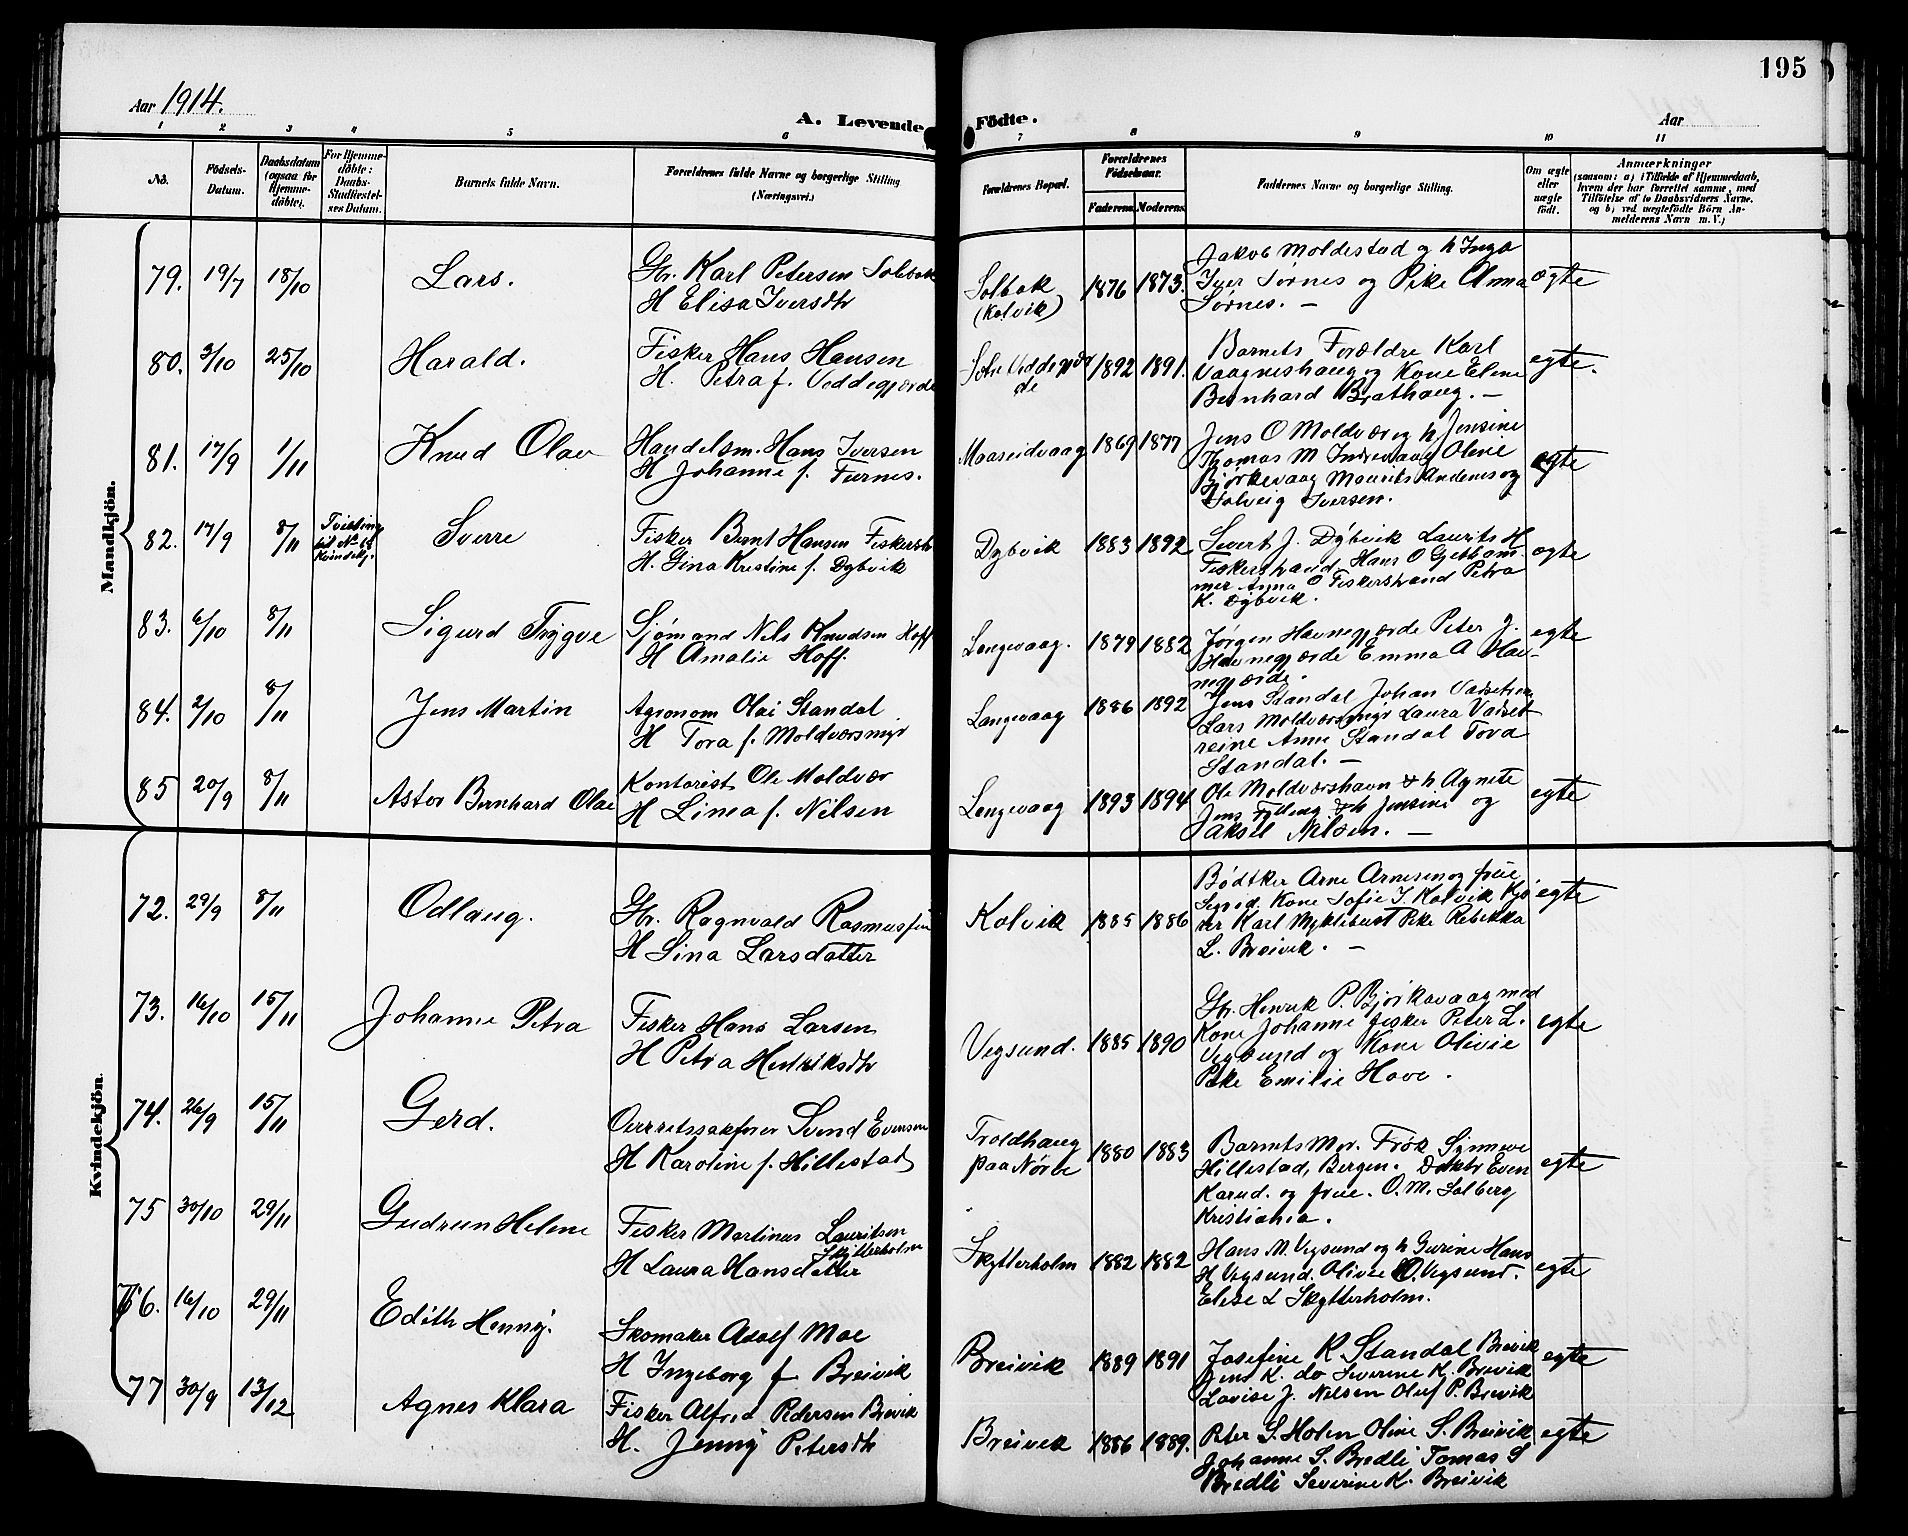 195
Aar 1914.
A. Levende Födte.
Aar
1 2 3 4 5 6 7 8 9 10 11
No.
Födsels-
Datum.
Daabsdatum
(ogsaa for
Hjemme-
döbte).
For Hjemme-
döbte:
Daabs-
Stadfæstel-
ses Datum.
Barnets fulde Navn.
Forældrenes fulde Navne og borgerlige Stilling
(Næringsvei.)
Forældrenes Bopæl.
Forældrenes
Födselsaar.
Faderens.
Moderens.
Faddernes Navne og borgerlige Stilling.
Om ægte
eller
uægte
födt.
Anmærkninger
(saasom: a) i Tilfælde af Hjemmedaab,
hvem der har forrettet samme, med
Tilföielse af to Daabsvidners Navne.
og b) ved uægtefödte Börn An-
melderens Navn m. V.)
Mandkjön.
79. 19/7 18/10 Lars.
Gbr. Karl Petersen Solbak
H Elisa Iversdtr
Solbak
(Kalvik)
1876 1873.
Jakob Moldestad og h Inga
Iver Sørnes og Pike Anna
Sørnes. —
ægte
80. 3/10 25/10 Harald.
Fisker Hans Hansen
H. Petra f. Veddegjærde
1892 1891.
Barnets Forældre Karl
Vaagneshaug og Kone Elene
Bernhard Brathaug. —
egte.
81. 17/9 1/11 Knud Olav
Handelsm. Hans Iversen
H Johanne f. Furnes.
Maaseidvaag 1869 1877
Jens O Moldvær og h. Jensine
Thomas M Indrevaag Oline
Bjørkevaag Maurits Andenes og
Solveig Iversen.
egte
82. 17/9 8/11
Tvilling
til No 69
Kvindekj.
Sverre
Fisker Bernt Hansen Fiskerstr
H. Gina Kristine f. Dybvik
Dybvik 1883 1892
Sivert J. Dybvik Laurits H
Fiskerstrand Hans O Gjetham-
mer Anna O Fiskerstrand Petra
K. Dybvik.
egte
83. 6/10 8/11 Sigurd Trygve
Sjømand Nils Knudsen Hoff
H Amalie Hoff.
Langevaag. 1879 1882
Jørgen Havnegjærde Peter J.
Havnegjærde Emma A Hav-
negjærde.
egte
84. 2/10 8/11 Jens Martin
Agronom Olai Standal
H Tora f. Moldværsmyr
Langevaag 1886 1892
Jens Standal Johan Vadset
Lars Moldværsmyr Laura Vadset
reine Anne Standal Tora
Standal. —
85 20/9 8/11 Astor Bernhard Olai
Kontorist Ole Moldvær
H Lina f. Nilsen
Langevaag 1893 1894
Ole Moldværshavn & h Agnete
Jens Fylling & h Jensine og
Aksel Nilsen. —
egte
Kvindekjön.
72. 29/9 8/11 Odlaug.
Gbr. Ragnvald Rasmussen
H Sina Larsdatter
Kalvik 1885 1886
Bødtker Arne Arnesen og frue
Sigrid Kone Sofie I. Kalvik Kjø-
rer Karl Myklebust Pike Rebekka
L. Breivik. —
egte
73. 16/10 15/11 Johanne Petra
Fisker Hans Larsen
H Petra Henriksdtr
Vegsund. 1885 1890
Gbr. Henrik P. Bjørkavaag med
Kone Johanne fisker Peter L.
Vegsund og Kone Olivie
Pike Emilie Hove.
egte
74. 26/9 15/11 Gerd.
Overretssakfører Svend Evensen
H Karoline f. Hillestad
Troldhaug
paa Nörve
1880 1883
Barnets Mor. Frøk Synneve
Hillestad, Bergen. Doktor Even
Karud. og frue. O. M. Solberg
Kristiania.
egte
75 30/10 29/11 Gudrun Helene
Fisker Martinus Lauritsen
Skytterholm
H Laura Hansdatter
Skytterholm 1882 1882
Hans M. Vegsund og h Gurine Hans
H Vegsund. Olivie O. Vegsund.
Elise L Skytterholm.
egte
76. 16/10 29/11 Edith Henny.
Skomaker Adolf Moe
H Ingeborg f Breivik
Breivik 1889 1891
Josefine K. Standal Breivik
Jens K. do Severine K. Breivik
Lovise J. Nilsen Oluf P. Breivik
egte
77 30/9 13/12 Agnes Klara
Fisker Alfred Pedersen Breivik
H. Jenny Petersdtr
Breivik 1886 1889.
Peter S. Holen Oline S. Breivik
Johanne S. Bredli Tomas S
Bredli Severine K. Breivik
egte